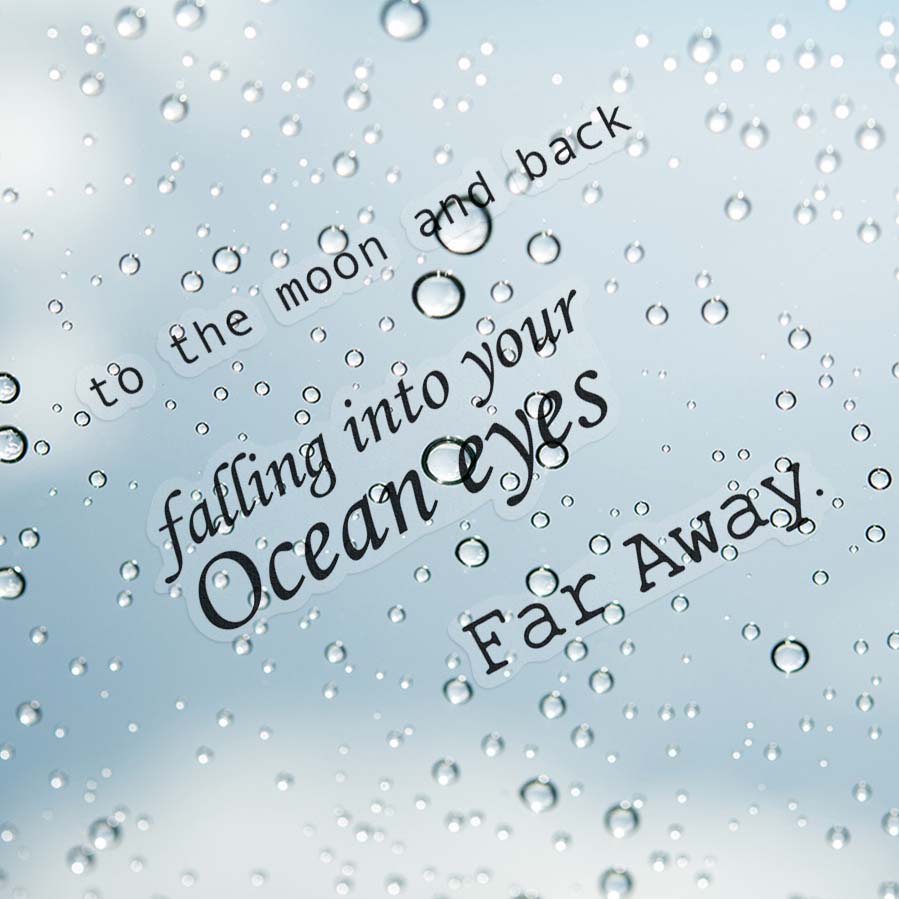 to the moon and back
falling into your
Ocean eyes
Far Away.